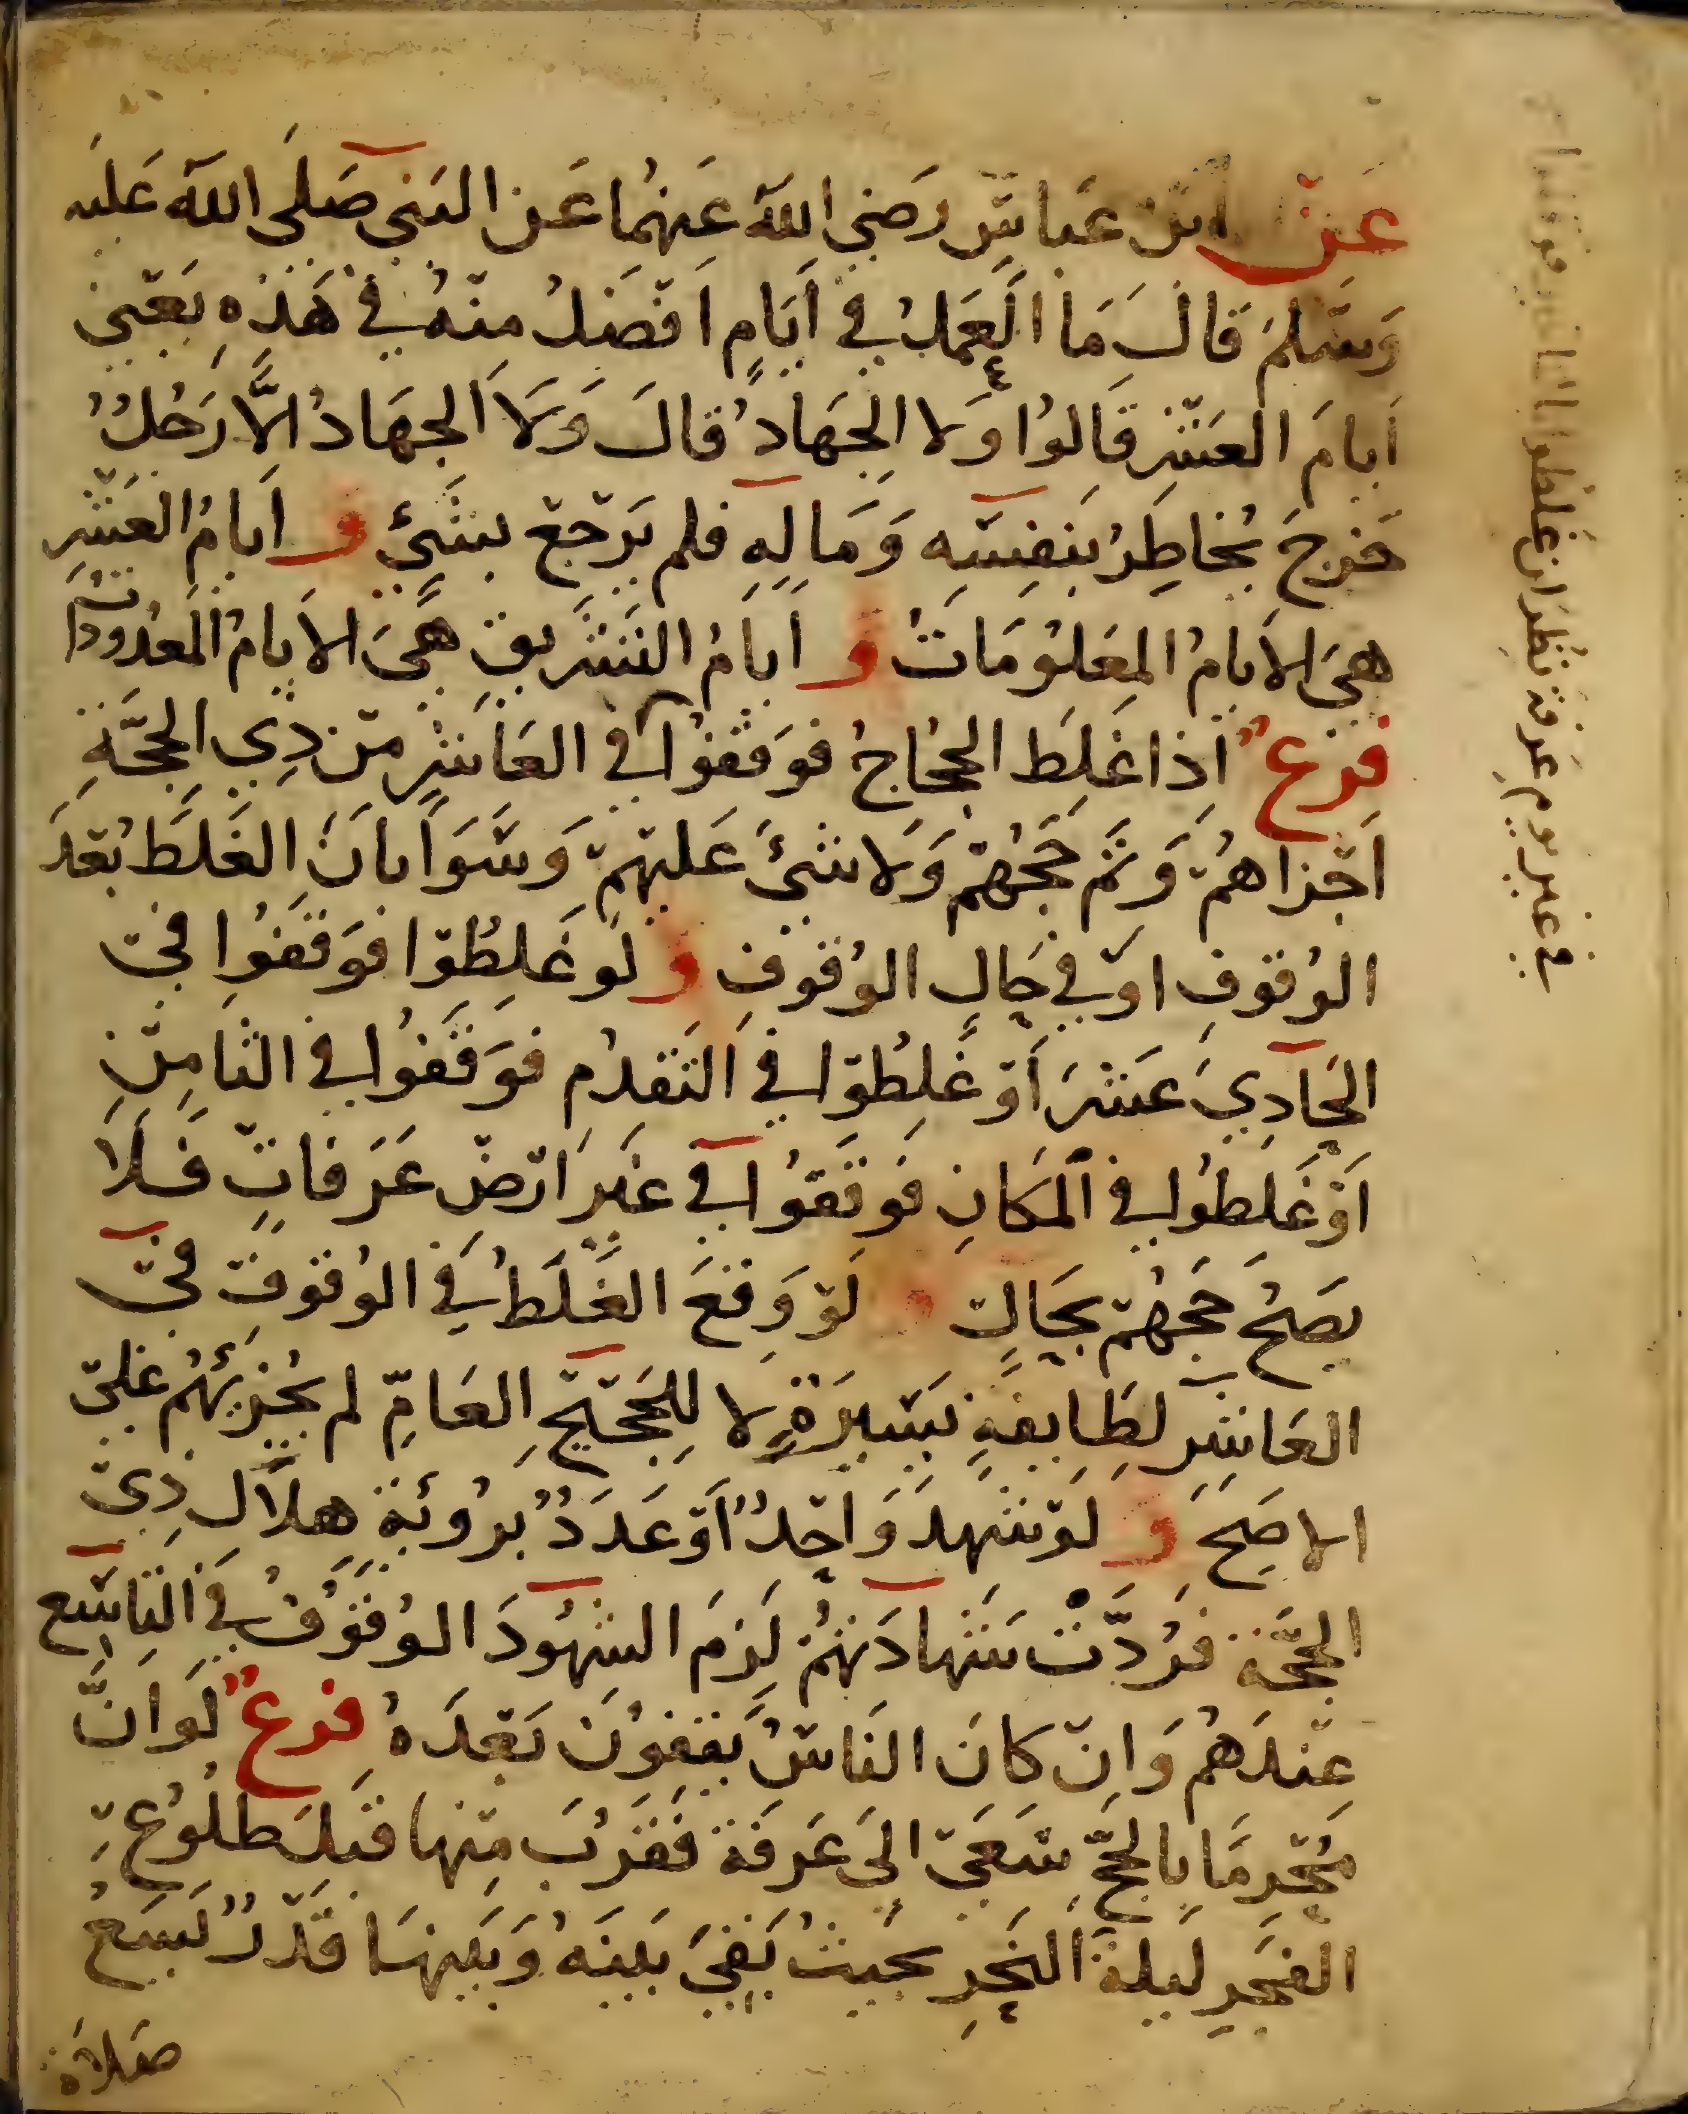 عَنْ ابْن عَبَاسٍ رَضِيَ اللهُ عَنهُمَا عَنِ النَبي صَلَى اللهُ عَليه
وَسَلَمَ قَالَ مَا العَمَلُ في اَيَامٍ اَفْضَلُ مِنْهُ في هَذِهِ يَعْني
اَيامَ العَشْرِ قَالوُا وَلا الجِهَادُ قالَ وَلَا الجِهَادُ الَّا رَجُلٌ
خَرجَ يُخاطِرُ بِنَفِسْه وَمَالِهِ فلم يَرْجعْ بِشَيٍ وَ اَيامُ العَشْرِ
هيَ الاَيامُ المعَلوُمَاتُ وَ اَيامُ التَشْرَيقِ هيَ الاَيامُ المَعدُودَات
فَرعٌ اِذا غَلِطَ الحُجاجُ فوَقَفوُا في العَاشِرِ مِنْ ذِي الحِجَّةِ
اَجْزاهُمْ وَتَم حَجُهُمْ وَلا شَيَ عَليْهِمْ وَسَوَا بانَ الغَلَطُ بَعْدَ
الوُقوْفِ اَوْ في حَالِ الوُقوْفِ وَ لَو غَلِطُوْا فوَقفَوُا في
الحَادِيَ عَشَرَ اَوْ غَلِطُوْا في التَقدُمِ فوَقَفُوا في الثامِنْ
اَوْ غَلِطُوا في المَكانِ فوَقَفَوُا في غَيرِ ارْضِ عَرَفاتٍ فَلَا
يصَحُ حَجُهُمْ بحَالٍ وَ لَوْ وَقعَ الغَلَطُ في الوُقوْفِ في
العَاشِرِ لطَايِفةٍ يَسَيرَةٍ لا لِلحَجيْجِ العَامِّ لم يُجْزيهُمْ عَلى
الاصَحِ وَ لَوْ شَهِدَ وَاحِدٌ اَوْ عَدَدٌ بِرُوئيَةِ هلَالِ ذِي
الحجَّةِ فرُدَّتْ شَهادَتُهُمْ لَزمَ الشهُودَ الوُقوْفُ في التَاسِع
عِنْدَهُمْ وَانْ كانَ النَاسُ يَقِفوُنَ بَعْدَهُ فَرعٌ لَو اَنَّ
مُحْرِمًا بالحَجِّ سَعَى الىَ عَرفةَ فَقرُبَ مِنها قَبلَ طلُوُعِ
الفَجرِ لَيلةَ النَحرِ بحَيثُ بَقيَ بَينَهُ وَبَيْنهَا قَدْرٌ يَسَعُ
صَلاة
في غير يوم عَرَفة نُظِرَ ان غَلطُوا